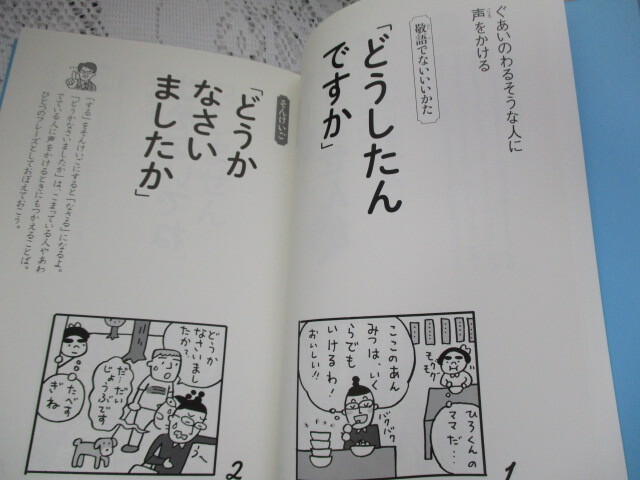 ぐあいのわるそうな人に
声をかける
敬語でないいいかた
「どうしたん
ですか」
ここのあん
みつは、いく
らでも
いけるわ!
おいしい!!
モグ
モグ
ひろくんの
ママだ…
バクバク
1
そんけいご
「どうか
なさい
ましたか」
「する」をそんけいごにすると「なさる」になるよ。
「どうかなさいましたか」は、こまっている人やあわ
てている人に声をかけるときにもつかえることば。
ひとつのフレーズとしておぼえておこう。
どうか
なさいまし
たか?
だ…だい
じょうぶです
たべす
ぎね
うへ
2